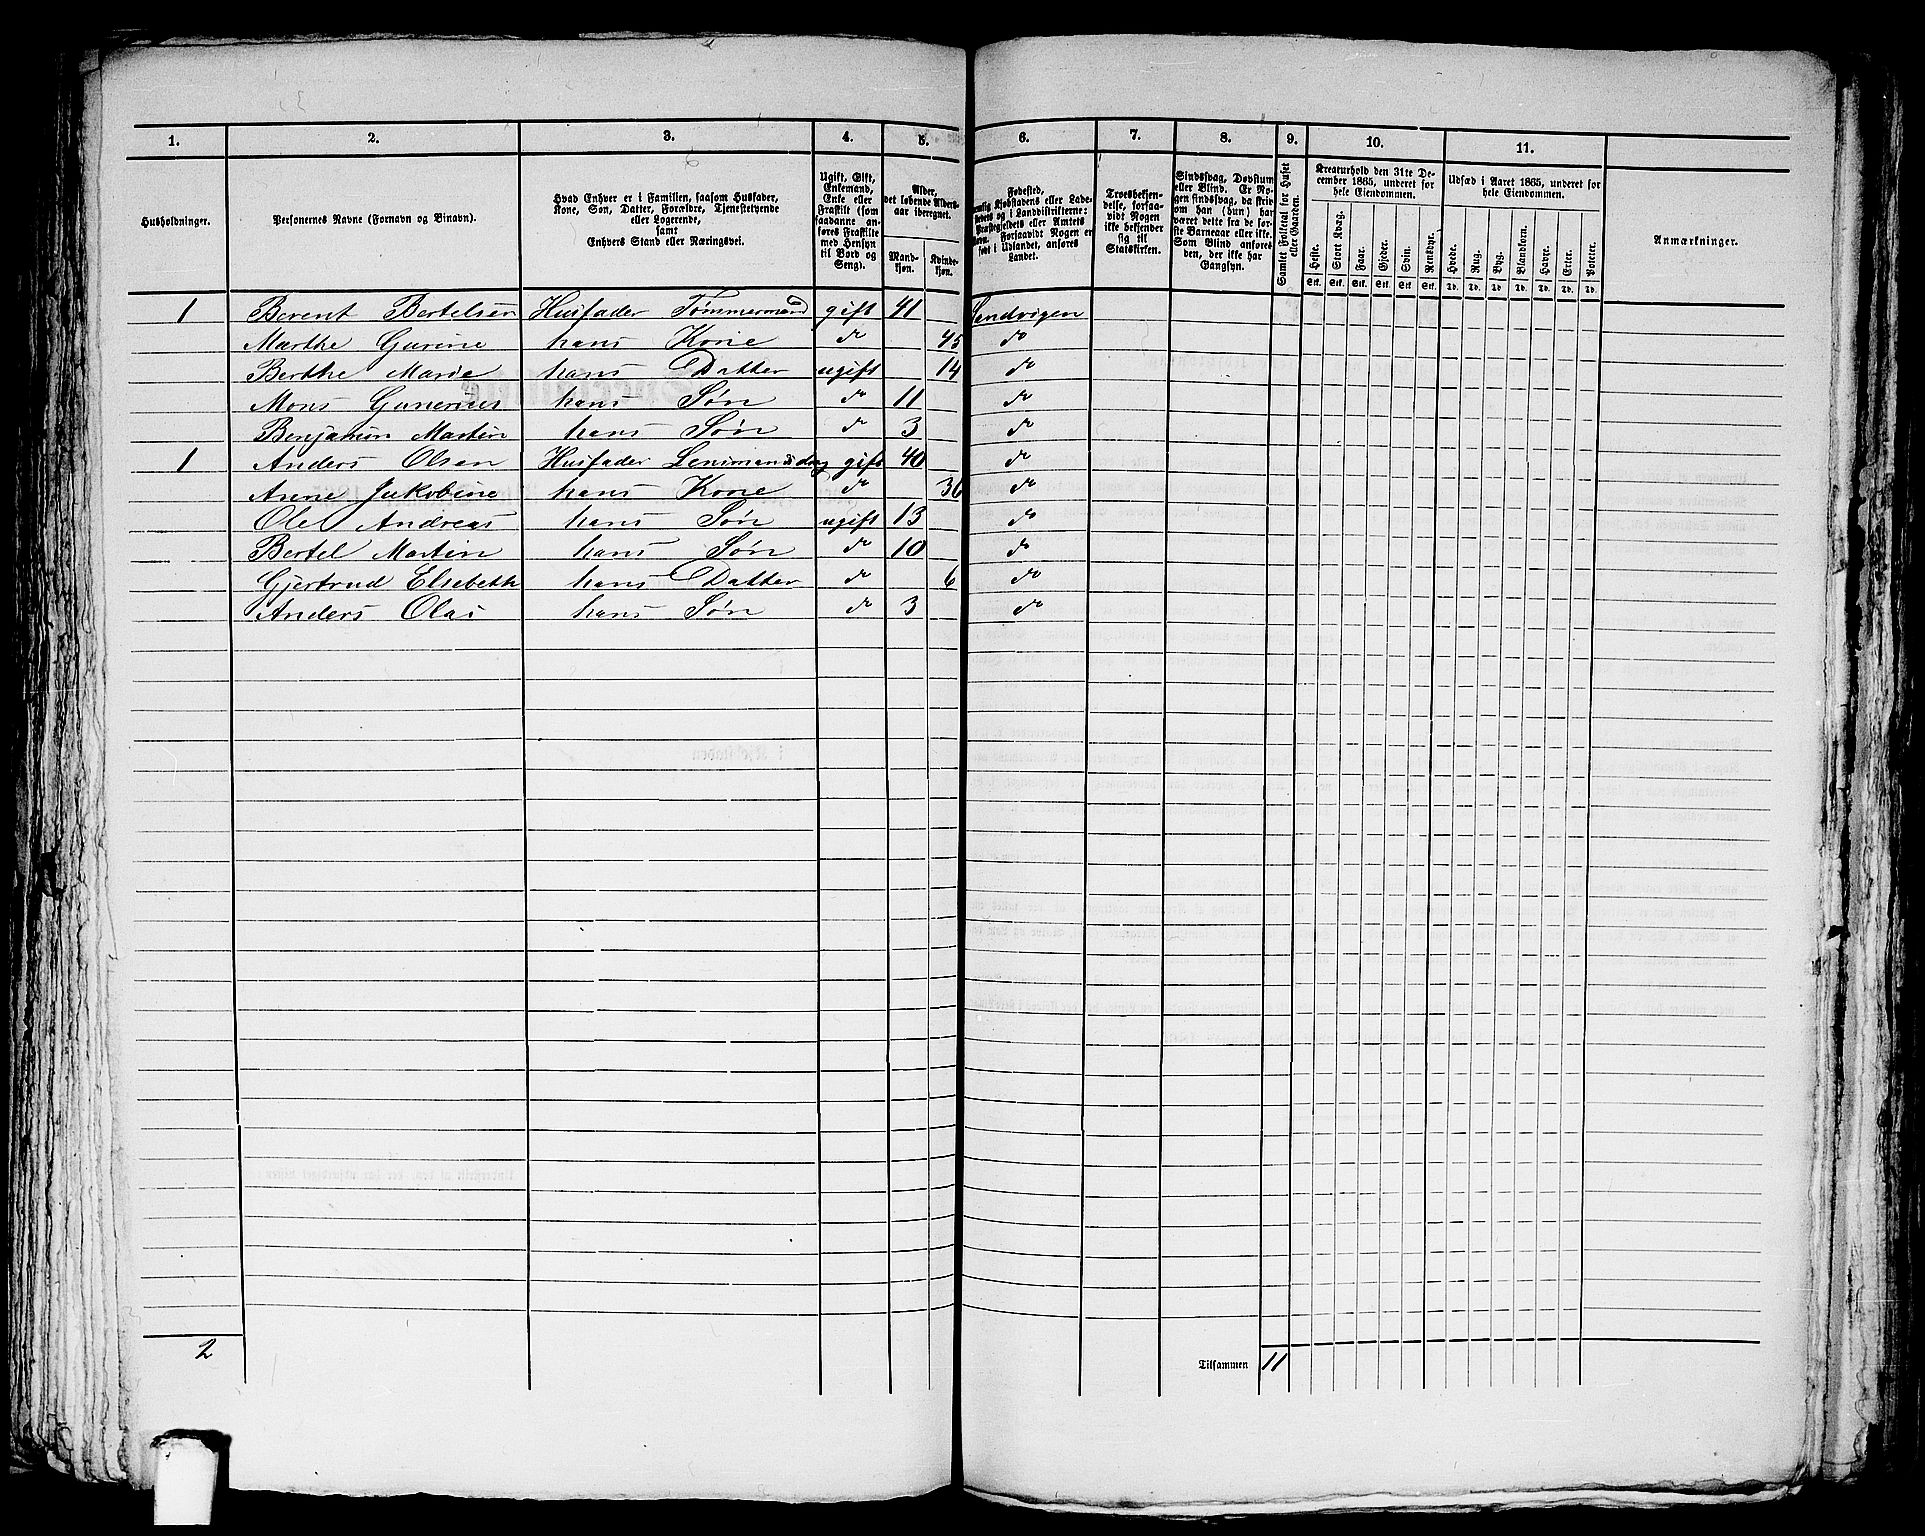 1. 2. 3. 4. 5. 6. 7. 8. 9. 10. 11.
Husholdninger.
Personernes Navne (Fornavn og Binavn).
Hvad Enhver er i Familien, saasom Husfader,
Kone, Søn, Datter, Forældre, Tjenestetyende
eller Logerende,
samt
Enhvers Stand eller Næringsvei.
Ugift, Gift,
Enkemand,
Enke eller
Fraskilt (som
saadanne an-
føres Fraskilte
med Hensyn
til Bord og
Seng).
Alder,
det løbende Alders-
aar iberegnet.
Mand-
kjøn.
Kvinde-
kjøn.
Fødested,
Kjøbstadens eller Lade-
stedets og i Landdistrikterne:
Præstegjeldets eller Amtets
Navn. Forsaavidt Nogen er
født i Udlandet, anføres
Landet.
Troesbekjen-
delse, forsaa-
vidt Nogen
ikke bekjender
sig til
Statskirken.
Sindssvag, Døvstum
eller Blind. Er No-
gen sindssvag, da skriv
om han (hun) har
været dette fra de før-
ste Barneaar eller ikke.
Som Blind anføres
den, der ikke har
Gangsyn.
Samlet Folketal for Huset
eller Gaarden.
Kreaturhold den 31te De-
cember 1865, underet for
hele Eiendommen.
Heste. Stort Kvæg. Faar. Gjeder. Svin. Rensdyr.
Stk. Stk. Stk. Stk. Stk. Stk.
Udsæd i Aaret 1865, underet for
hele Eiendommen.
Hvede. Rug. Byg. Blandkorn. Havre. Erter. Poteter.
Td. Td. Td. Td. Td. Td. Td.
Anmærkninger.
1 Berent Bertelsen Husfader Tømmermand gift 41 Sandvigen
Marthe Gurine hans Kone do 45 do
Berthe Marie hans Datter ugift 14 do
Mons Gunerius hans Søn do 11 do
Benjamin Martin hans Søn do 3 do
1 Anders Olsen Husfader Lensmandsdrag gift 40 do
Arene Jakobine hans Kone do 36 do
Ole Andreas hans Søn ugift 13 do
Bertel Martin hans Søn do 10 do
Gjertrud Elsebeth hans Datter do 6 do
Anders Olai hans Søn do 3 do
2 Tilsammen 11